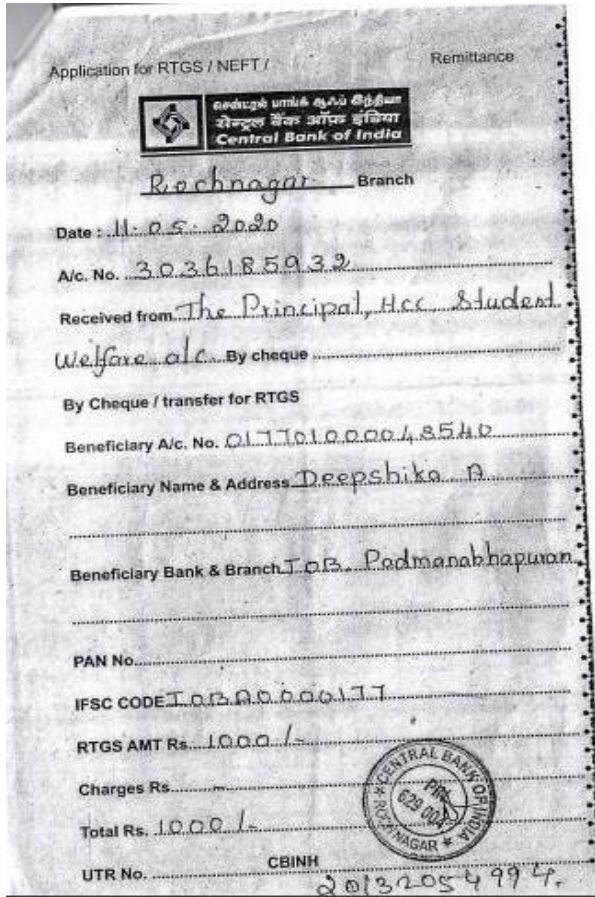 Application for RTGS / NEFT / Remittance
சென்ட்ரல் பாங்க் ஆஃப் இந்தியா
सेन्ट्रल बैंक ऑफ़ इंडिया
Central Bank of India
Rochnagar Branch
Date : 11-05-2020
A/c. No. 3036185932
Received from The Principal, Hcc, Student
Welfare a/c. By cheque
By Cheque / transfer for RTGS
Beneficiary A/c. No. 017701000048540
Beneficiary Name & Address Deepshika A
Beneficiary Bank & Branch IOB, Padmanabhapuran
PAN No.
IFSC CODE IOBA0000177
RTGS AMT Rs. 1000/-
Charges Rs. -
Total Rs. 1000/-
CENTRAL BANK OF INDIA
PIN
629 004
ROCH NAGAR
UTR No. CBINH
20132054994.